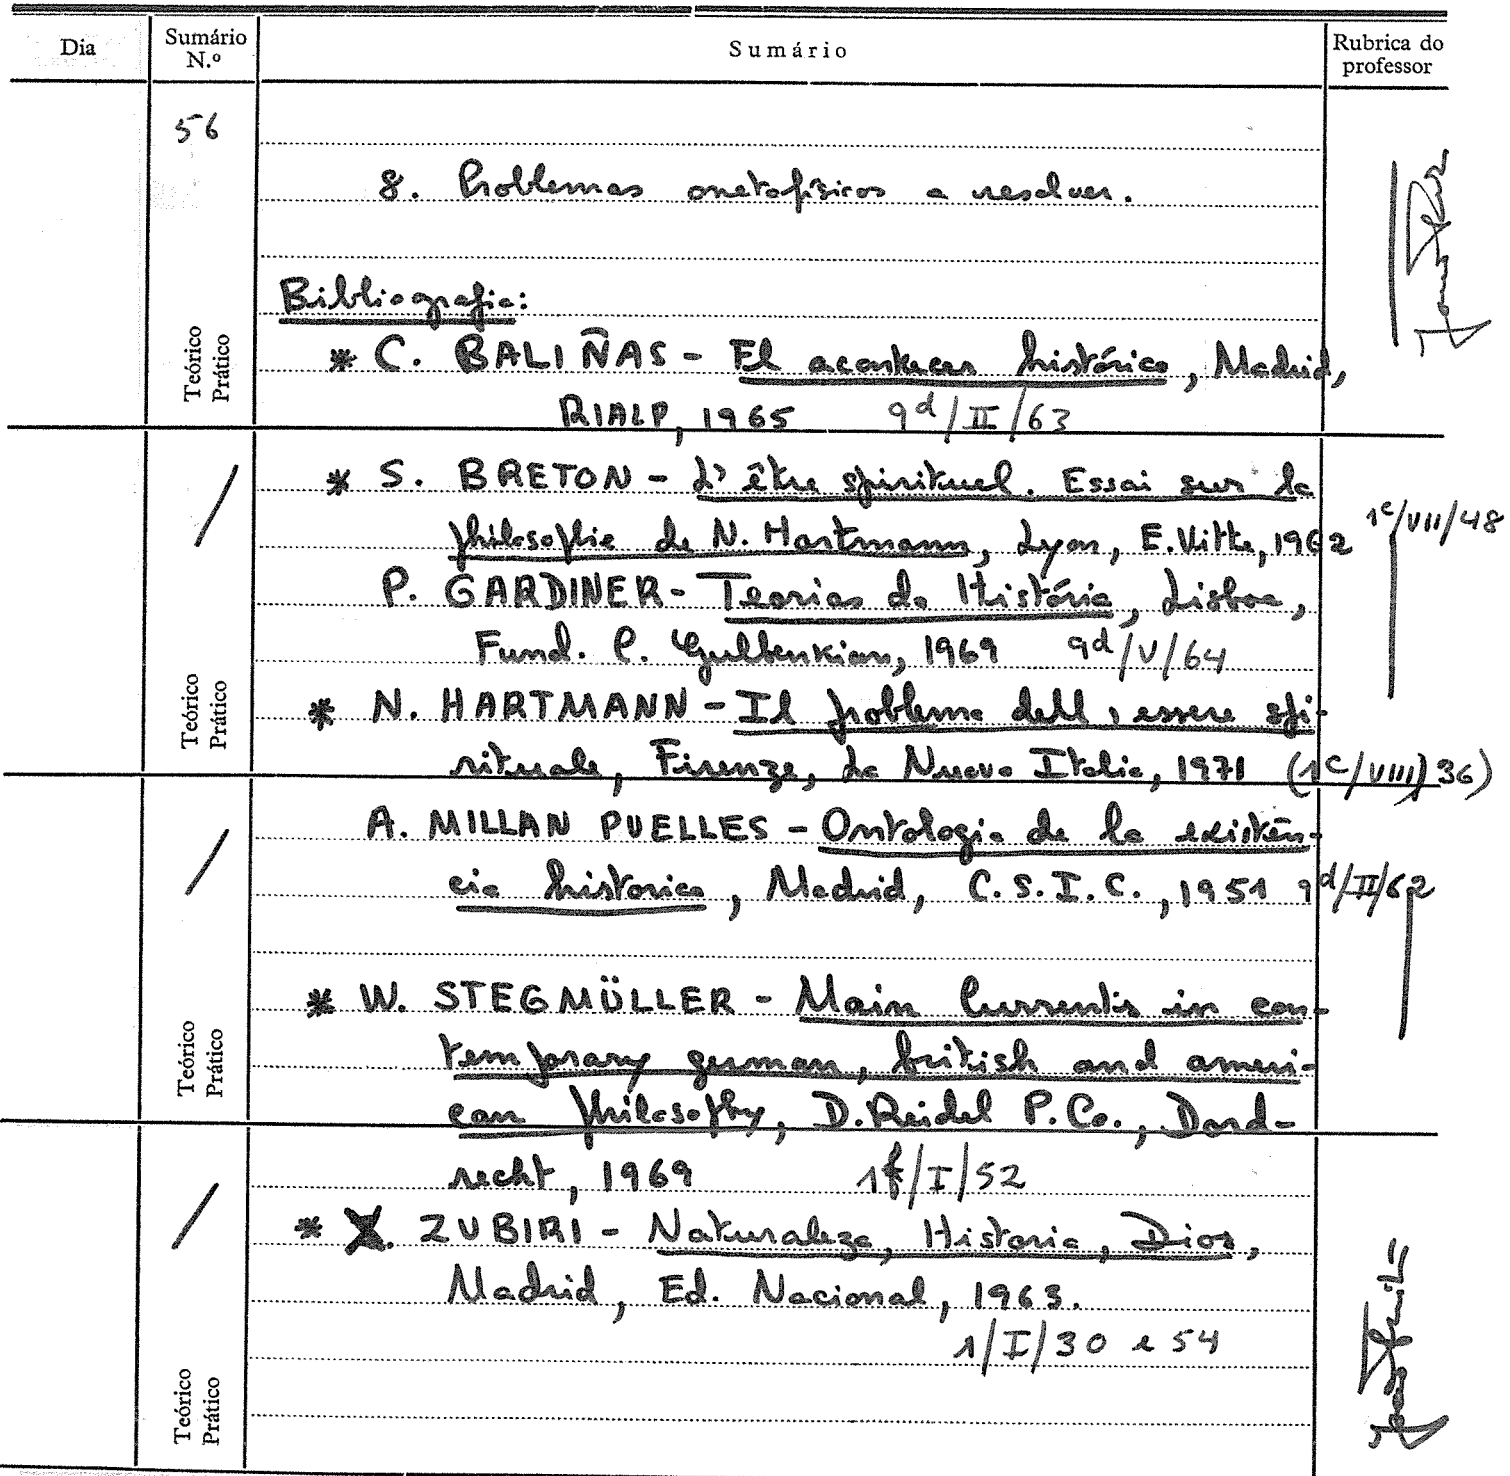 Dia
Sumário N.º
Sumário
Rubrica do professor
56
8. Problemas metafísicos a resolver.
Bibliografia:
* C. BALIÑAS - El acontecer histórico, Madrid,
RIALP, 1965 9d/II/63
Teórico
Prático
* S. BRETON - L'être spirituel. Essai sur la
philosophie de N. Hartmann, Lyon, E. Vitte, 1962 1c/VII/48
P. GARDINER - Teorias da História, Lisboa,
Fund. C. Gulbenkian, 1969 9d/V/64
* N. HARTMANN - Il problema dell'essere spi-
rituale, Firenze, La Nuova Italia, 1971 (1c/VIII/36)
Teórico
Prático
A. MILLAN PUELLES - Ontologia de la existên-
cia historica, Madrid, C.S.I.C., 1951 9d/II/62
* W. STEGMÜLLER - Main Currents in con-
temporary german, british and ameri-
can philosophy, D. Reidel P. Co., Dord-
Teórico
Prático
recht, 1969 1f/I/52
* X. ZUBIRI - Naturaleza, Historia, Dios,
Madrid, Ed. Nacional, 1963.
1/I/30 e 54
Teórico
Prático